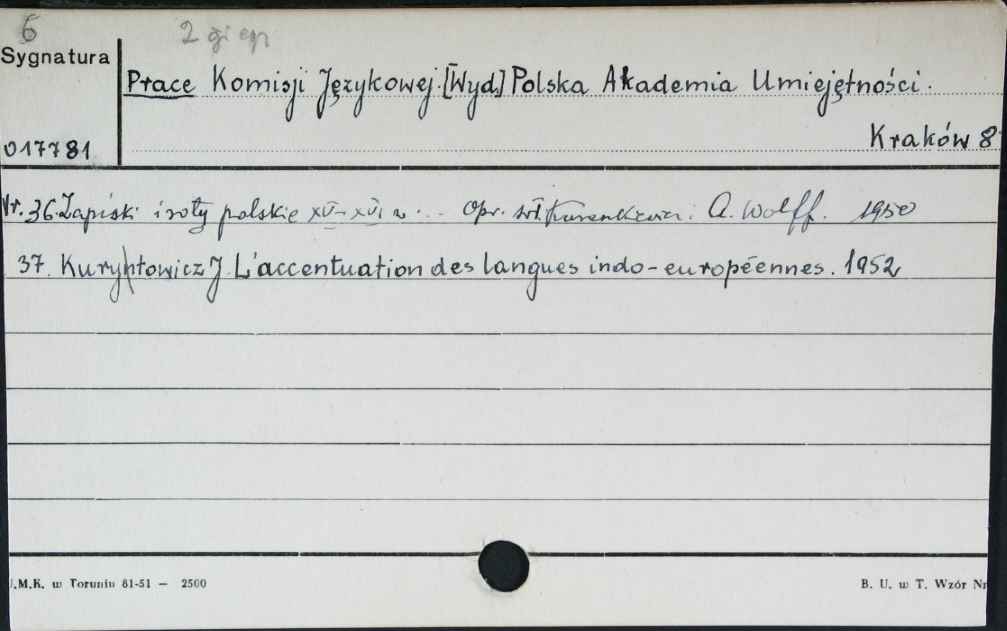 6
Sygnatura
Prace Komisji Językowej. [Wyd.] Polska Akademia Umiejętności.
017781
Kraków 8
Nr. 36. Zapiski i roty polskie XV-XVI w... Opr. Wł. Kuraszkiewicz i A. Wolff. 1950
37. Kuryłtowicz J L'accentuation des langues indo-européennes. 1952
.M.K. w Toruniu 81-51 — 2500
B. U. w T. Wzór Nr